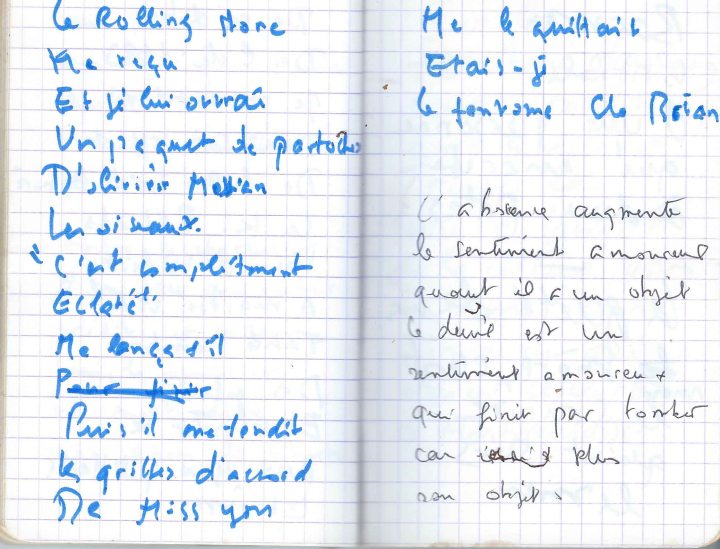 Le Rolling Stone
Me reçu
Et je lui ouvrai
Un paquet de partoches
D'olivier Messian
Les oiseaux.
"C'est complètement
Eclaté"
Me lança-t-il
Pour finir
Puis il me tendit
les grilles d'accord
De Miss you
Me le quittait
Etais-je
le fantome de Brian
L'absence augmente
le sentiment amoureux
quant il a un objet
le deuil est un
sentiment amoureux
qui finit par tomber
car plus
son objet.